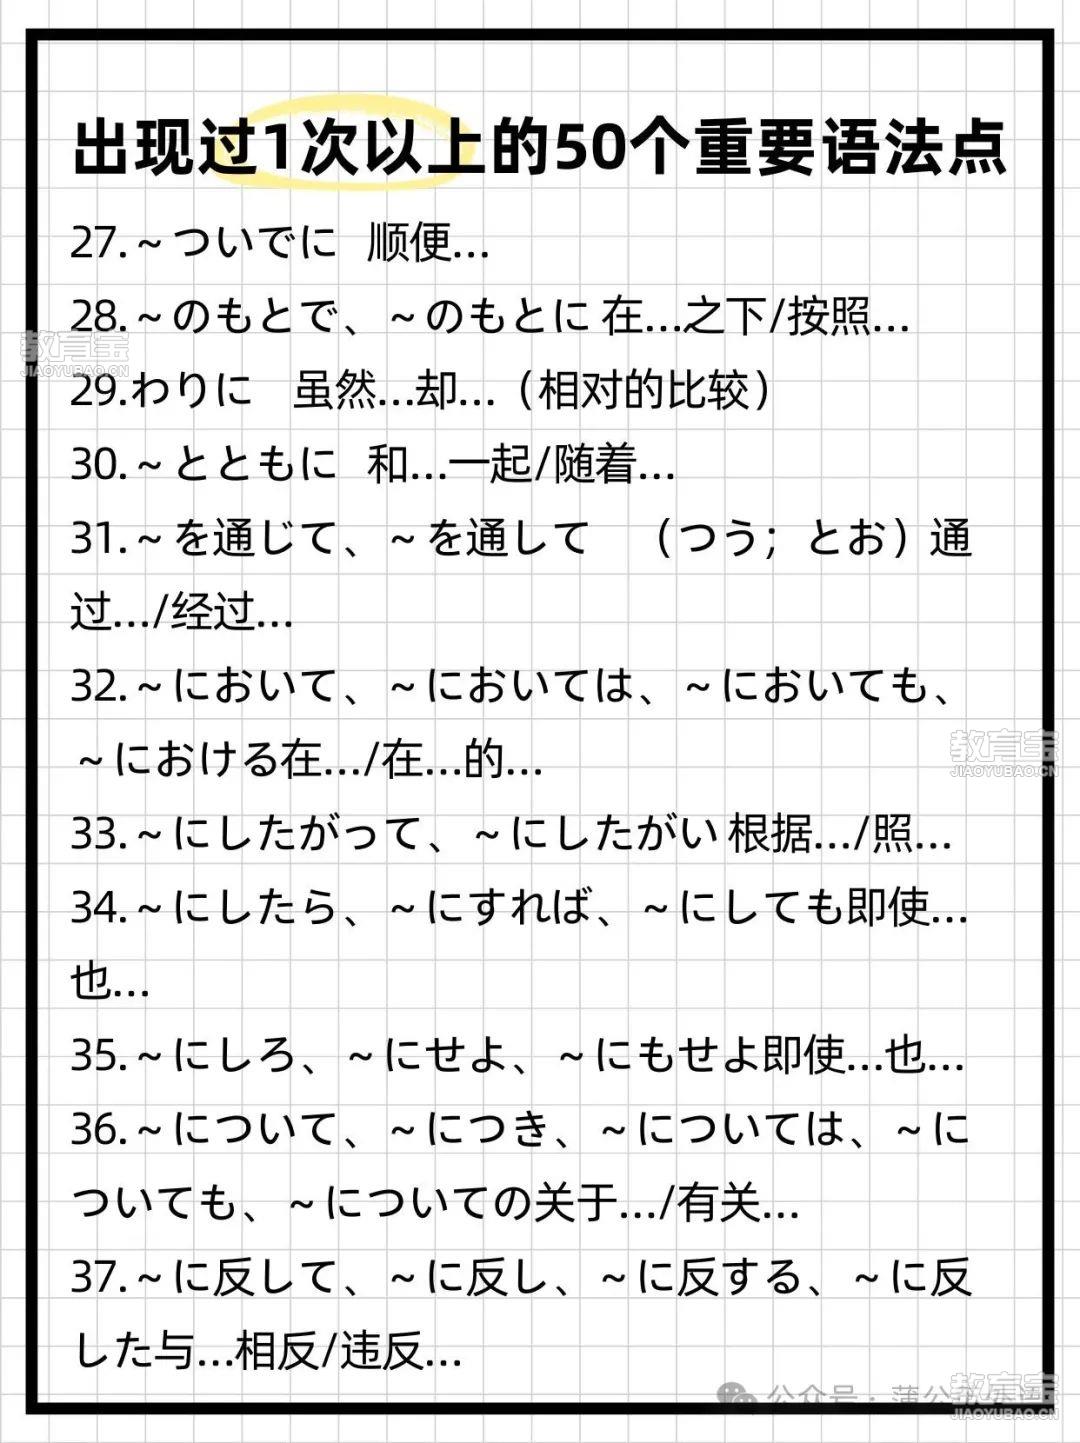 出现过1次以上的50个重要语法点
27.~ついでに 顺便...
28.~のもとで、~のもとに 在...之下/按照...
教育宝
JIAOYUBAO.CN
29.わりに 虽然...却...（相对的比较）
30.~とともに 和...一起/随着...
31.~を通じて、~を通して （つう；とお）通
过.../经过...
32.~において、~においては、~においても、
~における在.../在...的...
教育宝
JIAOYUBAO.CN
33.~にしたがって、~にしたがい 根据.../照...
34.~にしたら、~にすれば、~にしても即使...
也...
35.~にしろ、~にせよ、~にもせよ即使...也...
36.~について、~につき、~については、~に
ついても、~についての关于.../有关...
37.~に反して、~に反し、~に反する、~に反
した与...相反/违反...
公众号·蒲公
教育宝
JIAOYUBAO.CN